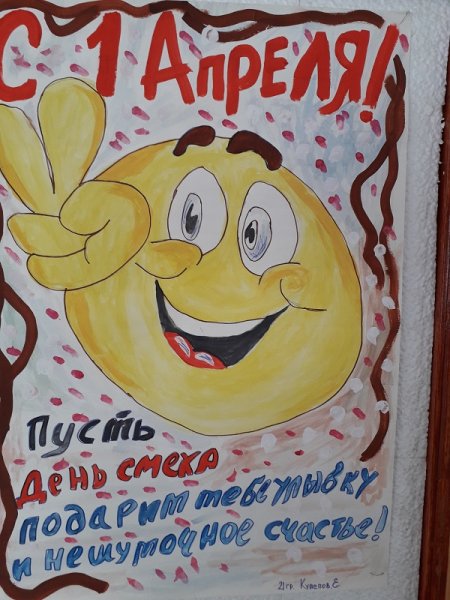 С 1 Апреля!
Пусть
День смеха
подарит тебе улыбку
и нешуточное счастье!
21 гр.